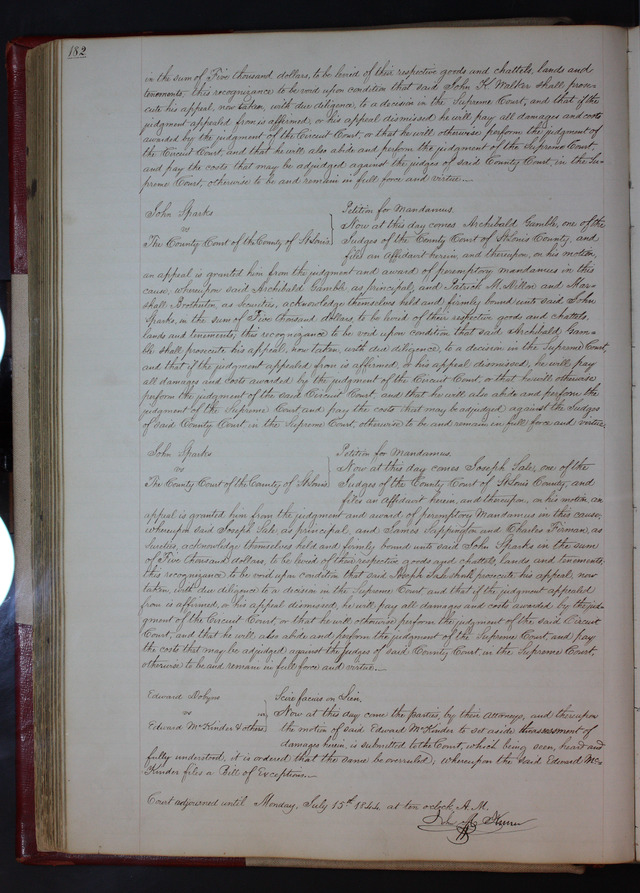 182
in the sum of Five thousand dollars, to be levied of their respective goods and chattels, lands and
tenements, this recognizance to be void upon condition that said John K Walker shall prose-
cute his appeal, now taken, with due diligence, to a decision in the Supreme Court, and that if the
judgment appealed from is affirmed, or his appeal dismissed, he will pay all damages and costs
awarded by the judgment of the Circuit Court, or that he will otherwise perform the judgment of
the Circuit Court, and that he will also abide and perform the judgment of the Supreme Court,
and pay the costs that may be adjudged against the judges of said County Court, in the Su-
preme Court, otherwise to be and remain in full force and virtue.
John Sparks
vs
The County Court of the County of St Louis
Petition for Mandamus.
Now at this day comes Archibald Gamble, one of the
Judges of the County Court of St Louis County, and
files an affidavit herein, and thereupon, on his motion,
an appeal is granted him from the judgment and award of peremptory mandamus in this
cause, whereupon said Archibald Gamble as principal, and Patrick M. Dillon and Mar-
shall Brotherton, as Securities, acknowledge themselves held and firmly bound unto said John
Sparks, in the sum of Five thousand dollars, to be levied of their respective goods and chattels,
lands and tenements, this recognizance to be void upon condition that said Archibald Gam-
ble shall prosecute his appeal, now taken, with due diligence, to a decision in the Supreme Court,
and that if the judgment appealed from is affirmed, or his appeal dismissed, he will pay
all damages and costs awarded by the judgment of the Circuit Court, or that he will otherwise
perform the judgment of the said Circuit Court, and that he will also abide and perform the
judgment of the Supreme Court and pay the costs that may be adjudged against the Judges
of said County Court in the Supreme Court, otherwise to be and remain in full force and virtue.
John Sparks
vs
The County Court of the County of St Louis
Petition for Mandamus.
Now at this day comes Joseph Sale, one of the
Judges of the County Court of St Louis County, and
files an Affidavit herein, and thereupon, on his motion, an
appeal is granted him from the judgment and award of peremptory Mandamus in this cause,
whereupon said Joseph Sale as principal and James Sappington and Charles Fierman, as
Securities, acknowledge themselves held and firmly bound unto said John Sparks in the sum
of Five thousand dollars, to be levied of their respective goods and chattels, lands and tenements,
this recognizance to be void upon condition that said Joseph Sale shall prosecute his appeal now
taken, with due diligence to a decision in the Supreme Court, and that if the judgment appealed
from is affirmed, or his appeal dismissed, he will pay all damages and costs awarded by the judg-
ment of the Circuit Court, or that he will otherwise perform the judgment of the said Circuit
Court, and that he will also abide and perform the judgment of the Supreme Court, and pay
the costs that may be adjudged against the judges of said County Court, in the Supreme Court,
otherwise to be and remain in full force and virtue.
Edward Dobyns
vs
Edward McKinder & others
in
Scire facias on Lien.
Now at this day come the parties, by their attorneys, and thereupon
the motion of said Edward McKinder to set aside the assessment of
damages herein, is submitted to the Court, which being seen, heard and
fully understood, it is ordered that the same be overruled; whereupon the said Edward Mc-
Kinder files a Bill of Exceptions.
Court adjourned until Monday, July 15th 1844, at ten oclock A.M.